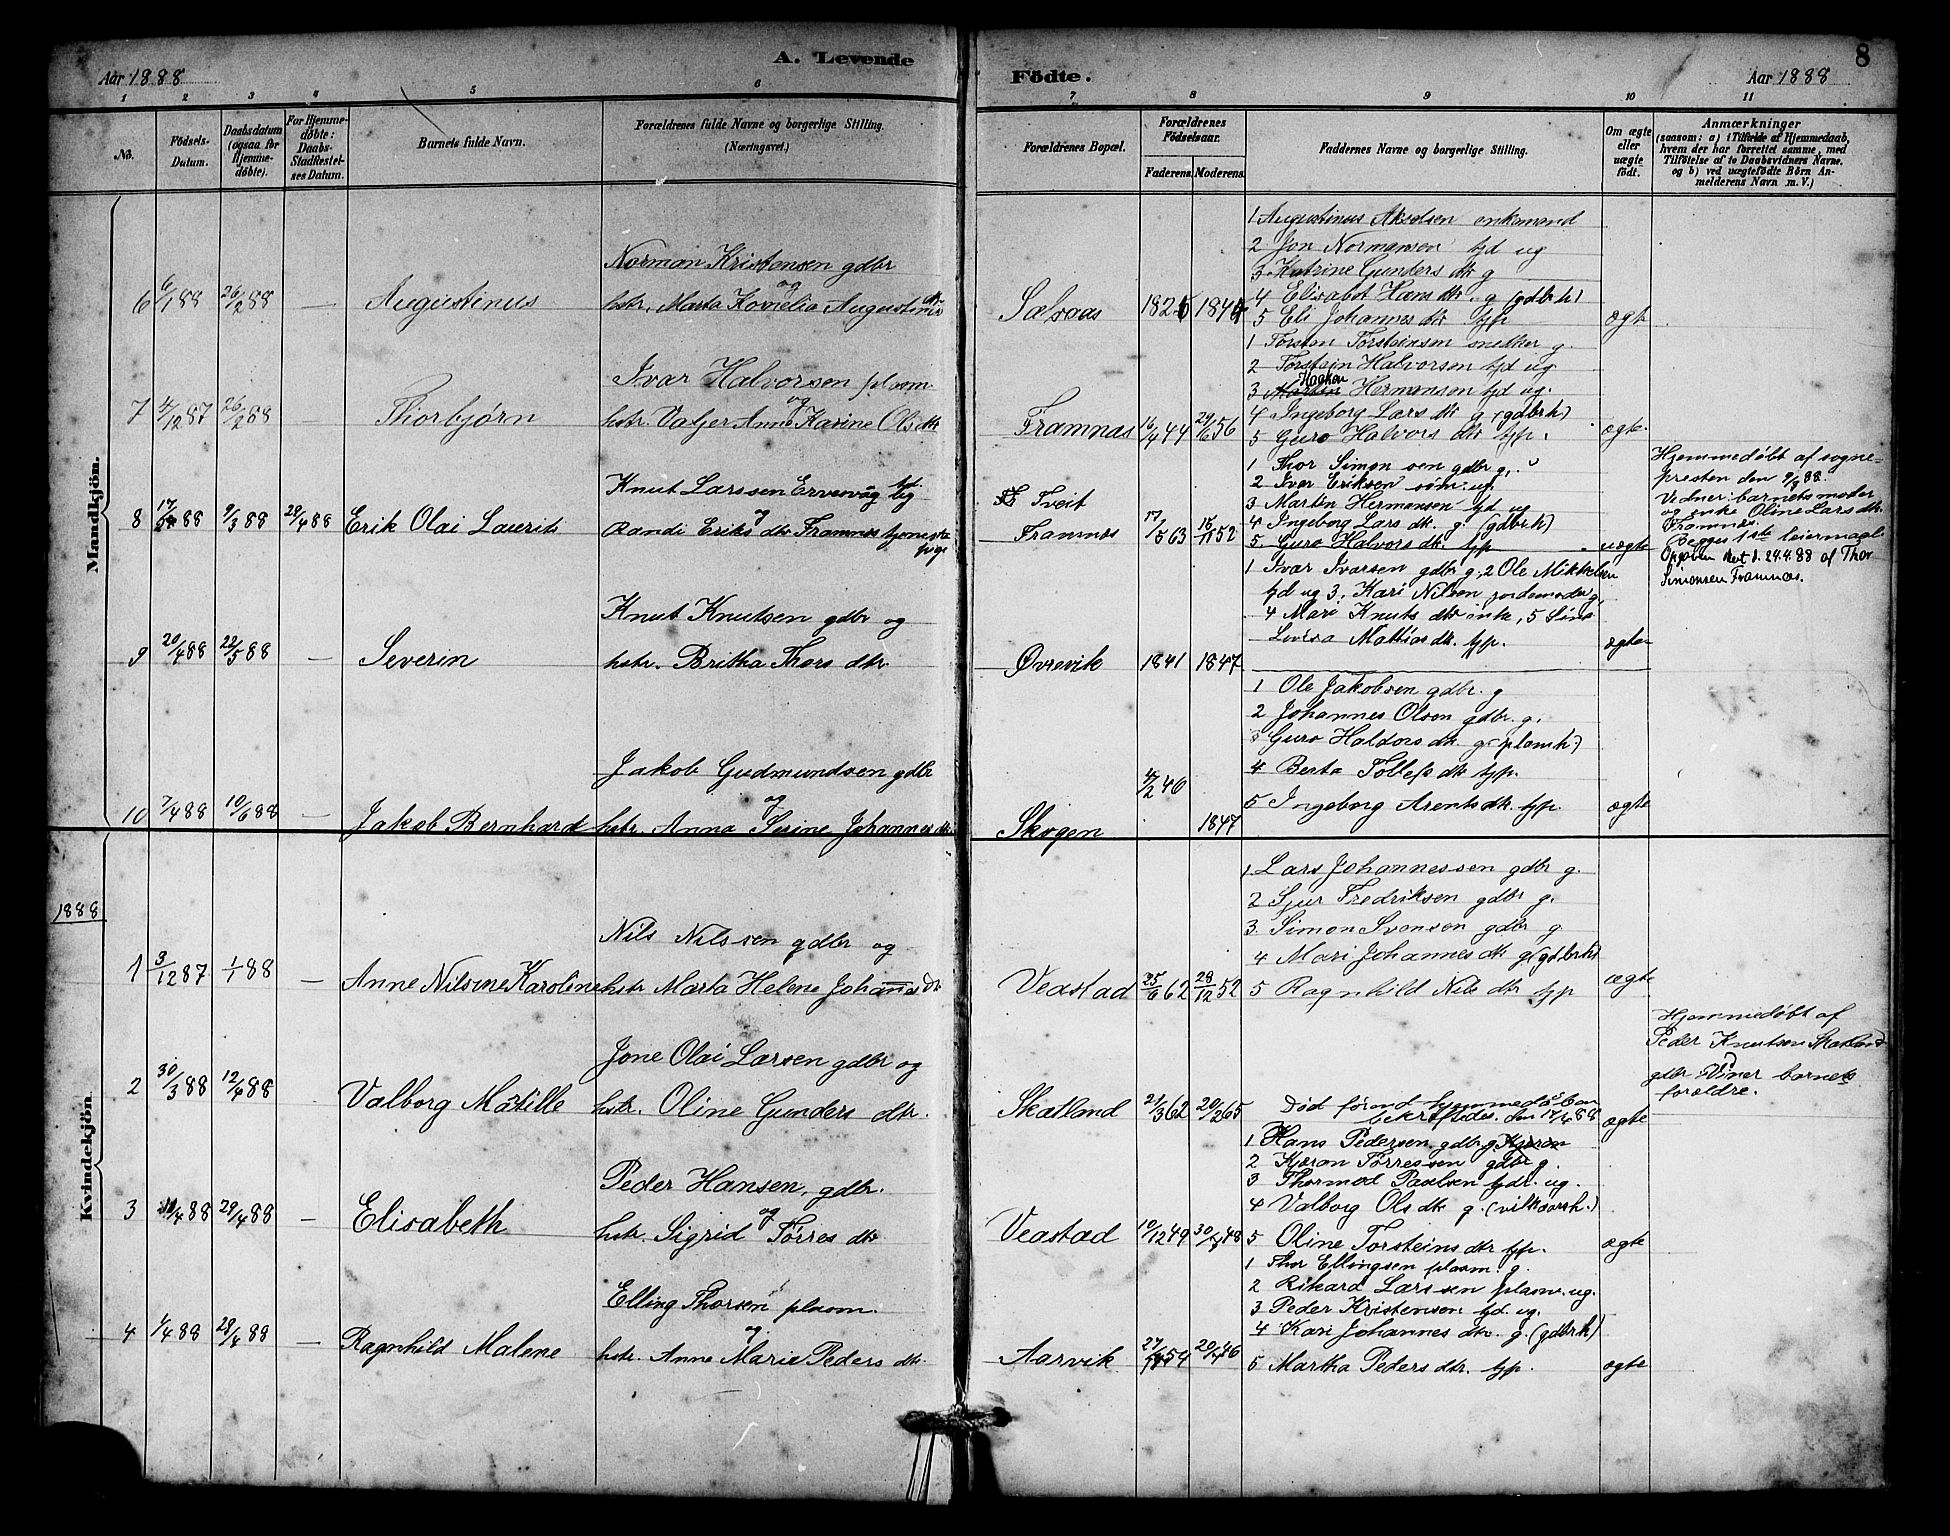 A. Levende
Aar 1888
1 2 3 4 5 6
No.
Födsels-Datum.
Daabsdatum (ogsaa for Hjemme-døbte).
For Hjemme-døbte: Daabs-Stadfæstel-ses Datum.
Barnets fulde Navn.
Forældrenes fulde Navne og borgerlige Stilling. (Næringsvei.)
Mandkjön.
Norman Kristensen gdbr
og
6 6/1 88 26/2 88 — Augustinus hstr. Marta Augustinus dtr
Ivar Halvorsen plsom.
og
7 4/12 87 26/2 88 Thorbjørn hstr. Valjer Anne Karine Ols dtr
Knut Larssen Ervesvåg
og
8 17/ 88 9/3 88 29/4 88 Erik Olai Laurids Randi Eriks dtr Framnes tjeneste
pige
Knut Knutsen gdbr og
9 20/4 88 22/5 88 — Severin hstr. Britha Thors dtr
Jakob Gudmundsen gdbr
og
10 7/4 88 10/6 88 — Jakob Bernhard hstr. Anna Serine Johannes dtr
1888
Kvindekjön
Nils Nilssen gdbr og
1 3/12 87 1/1 88 — Anne Nilsine Karoline hstr Marta Helene Johannes Dtr
Jone Olai Larsen gdbr og
2 30/3 88 12/4 88 Valborg Matille hstr. Oline Gunders dtr.
Peder Hansen, gdbr.
og
3 /4 88 29/4 88 — Elisabeth hstr. Sigrid Tørres dtr
Elling Thorsen plsom.
og
4 1/4 88 29/4 88 — Ragnhild Malene hstr. Anne Marie Peders dtr.
8
Födte.
Aar 1888
7 8 9 10 11
Forældrenes Bopæl.
Forældrenes Födselsaar.
Faderens. Moderens.
Faddernes Navne og borgerlige Stilling.
Om ægte eller uægte födt.
Anmærkninger
(saasom: a) i Tilfælde af Hjemmedaab,
hvem der har forrettet samme, med
Tilföielse af to Daabsvidners Navne.
og b) ved uægtefödte Börn An-
melderens Navn m. V.)
1 Augustinus Akselsen enkemand
2 Jon Normansen tjd ug
3 Katrine Gunders dtr g
4 Elisabet Hans dtr. g (gdbrh)
Sælvaas 1825 184 5 Eli Johannes dtr tjp ægte
1 Torsten Torsteinsen snetker g.
2 Torstein Halvorsen tjd ug
3 Haaken Hermensen tjd ug.
4 Ingeborg Lars dtr g (gdbrh)
Framnæs 16/4 44 29/6 56 5 Guro Halvors dtr tjp. ægte.
1 Thor Simonsen gdbr g.
2 Iver Eriksen søm. ug.
Tveit 3 Martin Hermensen tjd ug
4 Ingeborg Lars dtr. g. (gdbrh)
Framnæs 17/5 63 15/11 52 5. Guro Halvors dtr. tjp uægte
Hjemmedøbt af sogne-
presten den 9/3 88.
Vidner: barnets moder
og enke Oline Lars dtr
Framnæs.
Begges 1ste leiermaal.
Opgiven den 1. 24.4.88 af Thor
Simonsen Framnæs.
1 Ivar Ivarsen gdbr g, 2 Ole Mikkelsen
tjd ug 3. Kari Nilsen jordemoder g,
4 Mari Knuts dtr enke, 5 Sina
Lovisa Mattias dtr. tjp. ægte
Øvrevik 1841 1847
1 Ole Jakobsen gdbr. g
2 Johannes Olsen gdbr. g.
3 Guro Haldors dtr. g (plsmh)
4 Berta Tollefs dtr tjp.
/2 40
5 Ingeborg Arents dtr. tjp. ægte
Skogen 1847
1. Lars Johannessen gdbr g.
2 Sjur Fredriksen gdbr g.
3. Simon Svensen gdbr g
4 Mari Johannes dtr g (gdbrh)
Veastad 25/6 62 28/12 52 5 Ragnhild Nils dtr tjp ægte
Hjemmedøbt af
Peder Knutsen Skatland
gdbr Vidner barnets
foreldre.
Død førend hjemmedåben
bekræftedes. den 17/4 88
Skatland 21/3 62 20/2 65 ægte
1 Hans Pedersen gdbr g.
2 Kjøran Tørressen gdbr g.
3 Thormod Paulsen tjdr. ug.
4 Valborg Ols dtr g. (vilkaarsh.)
Veastad 10/12 49 30/ 48 5 Oline Torsteins dtr tjp. ægte
1 Thor Ellingsen plsom. g.
2 Rikard Larssen plsom. ug.
3 Peder Kristensen tjd ug.
4 Kari Johannes dtr. g. (gdbrh)
Aarvik 27/ 54 20/ 46 5 Martha Peders dtr. tjp. ægte